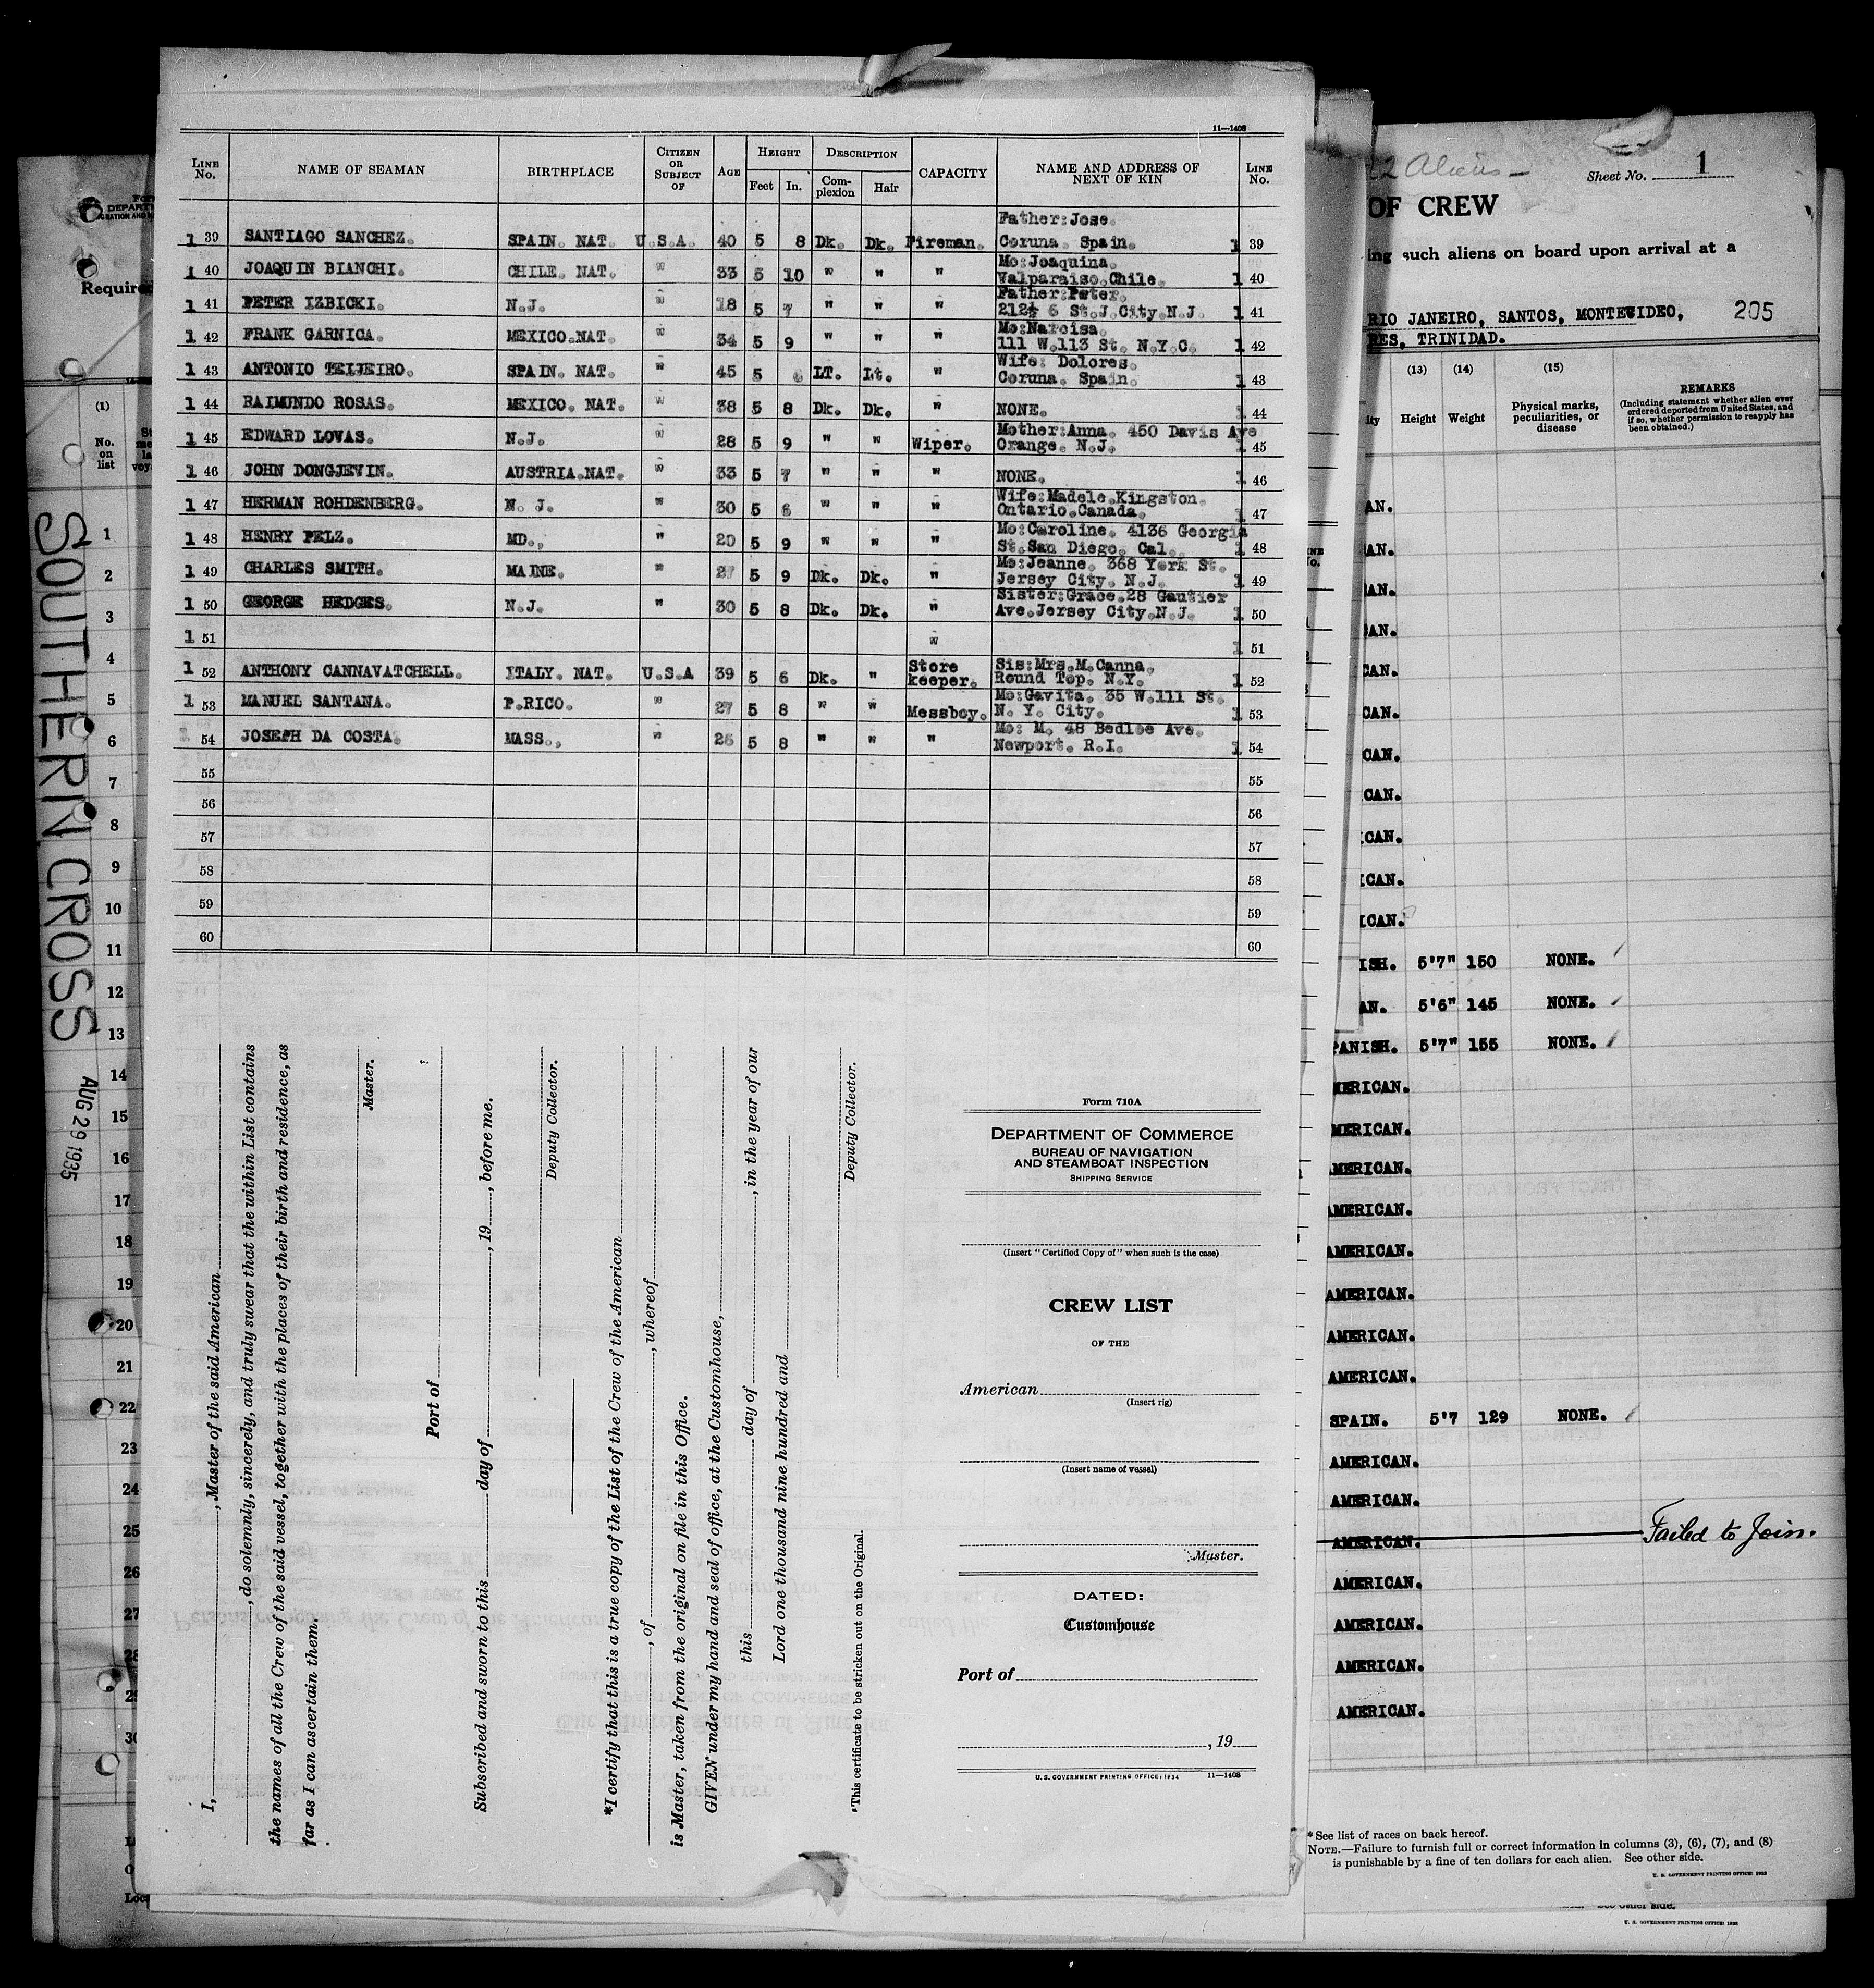 11—1408
LINE No. NAME OF SEAMAN BIRTHPLACE CITIZEN OR SUBJECT OF AGE HEIGHT Feet In. DESCRIPTION Complexion Hair CAPACITY NAME AND ADDRESS OF NEXT OF KIN LINE No.
1 39 SANTIAGO SANCHEZ. SPAIN. NAT. U.S.A. 40 5 8 Dk. Dk. Fireman. Father:Jose. Coruna. Spain. 1 39
1 40 JOAQUIN BIANCHI. CHILE. NAT. " 33 5 10 " " " Mo:Joaquina. Valparaiso.Chile. 1 40
1 41 PETER IZBICKI. N.J. " 18 5 7 " " " Father:Peter. 212½ 6 St.J.City.N.J. 1 41
1 42 FRANK GARNICA. MEXICO.NAT. " 34 5 9 " " " Mo:Narcisa. 111 W.113 St. N.Y.C. 1 42
1 43 ANTONIO TEIJEIRO. SPAIN. NAT. " 45 5 LT. Lt. " Wife: Dolores. Coruna. Spain. 1 43
1 44 RAIMUNDO ROSAS. MEXICO. NAT. " 38 5 8 Dk. Dk. " NONE. 1 44
1 45 EDWARD LOVAS. N.J. " 28 5 9 " " Wiper. Mother:Anna. 450 Davis Ave Orange. N.J. 1 45
1 46 JOHN DONGJEVIN. AUSTRIA.NAT. " 33 5 7 " " " NONE. 1 46
1 47 HERMAN ROHDENBERG. N. J. " 30 5 6 " " " Wife:Madele.Kingston. Ontario.Canada. 1 47
1 48 HENRY PELZ. MD., " 20 5 9 " " " Mo:Caroline. 4136 Georgia St.San Diego. Cal. 1 48
1 49 CHARLES SMITH. MAINE. " 27 5 9 Dk. Dk. " Mo:Jeanne. 368 York St. Jersey City. N.J. 1 49
1 50 GEORGE HEDGES. N.J. " 30 5 8 Dk. Dk. " Sister:Grace.28 Gautier Ave.Jersey City.N.J. 1 50
1 51 " 1 51
1 52 ANTHONY CANNAVATCHELL. ITALY. NAT. U.S.A 39 5 6 Dk. " Store keeper. Sis:Mrs.M.Canna. Round Top. N.Y. 1 52
1 53 MANUEL SANTANA. P.RICO. " 27 5 8 " " Messboy. Mo:Gavita. 35 W.111 St. N. Y. City. 1 53
1 54 JOSEPH DA COSTA. MASS., " 26 5 8 " " " Mo: M. 48 Bedloe Ave. Newport. R.I. 1 54
55 55
56 56
57 57
58 58
59 59
60 60
I, , Master of the said American
, do solemnly, sincerely, and truly swear that the within List contains
the names of all the Crew of the said vessel, together with the places of their birth and residence, as
far as I can ascertain them.
Master.
Port of
Subscribed and sworn to this day of , 19 , before me.
Deputy Collector.
*I certify that this is a true copy of the List of the Crew of the American
, of , whereof
is Master, taken from the original on file in this Office.
GIVEN under my hand and seal of office, at the Customhouse,
this day of , in the year of our
Lord one thousand nine hundred and
Deputy Collector.
*This certificate to be stricken out on the Original.
Form 710A
DEPARTMENT OF COMMERCE
BUREAU OF NAVIGATION
AND STEAMBOAT INSPECTION
SHIPPING SERVICE
(Insert "Certified Copy of" when such is the case)
CREW LIST
OF THE
American
(Insert rig)
(Insert name of vessel)
Master.
DATED:
Customhouse
Port of
, 19
U.S. GOVERNMENT PRINTING OFFICE: 1934 11—1408
Required
(1)
No. on list
SOUTHERN CROSS
AUG 29 1935
1
2
3
4
5
6
7
8
9
10
11
12
13
14
15
16
17
18
19
20
21
22
23
24
25
26
27
28
29
30
2 Aliens –
Sheet No. 1
OF CREW
ing such aliens on board upon arrival at a
RIO JANEIRO, SANTOS, MONTEVIDEO, 205
RES, TRINIDAD.
(13) (14) (15)
Height Weight Physical marks, peculiarities, or disease
REMARKS
(Including statement whether alien ever ordered deported from United States, and if so, whether permission to reapply has been obtained.)
AN.
AN.
AN.
AN.
CAN.
CAN.
CAN.
CAN.
ICAN.
ICAN.
ICAN.
ISH. 5'7" 150 NONE.
AN. 5'6" 145 NONE.
PANISH. 5'7" 155 NONE.
MERICAN.
MERICAN.
MERICAN.
AMERICAN.
AMERICAN.
AMERICAN.
AMERICAN.
AMERICAN.
SPAIN. 5'7 129 NONE.
AMERICAN.
AMERICAN.
AMERICAN. Failed to Join.
AMERICAN.
AMERICAN.
AMERICAN.
AMERICAN.
*See list of races on back hereof.
NOTE.—Failure to furnish full or correct information in columns (3), (6), (7), and (8)
is punishable by a fine of ten dollars for each alien. See other side.
U. S. GOVERNMENT PRINTING OFFICE: 1933
See other side.